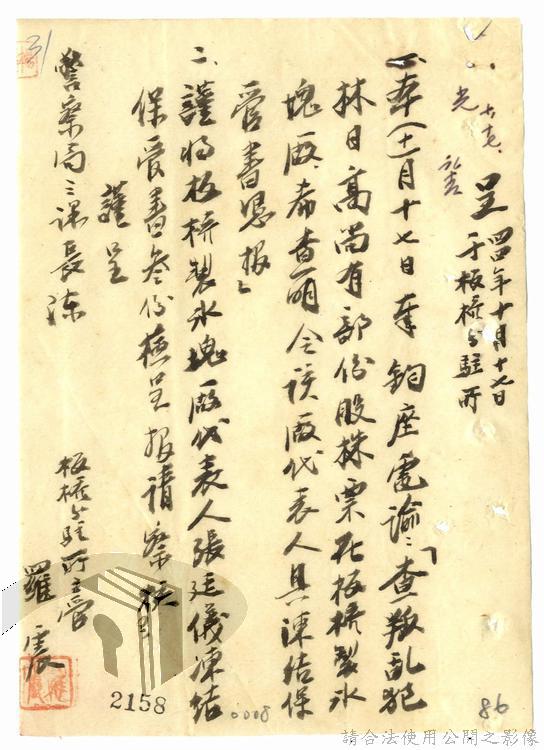 呈 四四年十月十七日
于板橋分駐所
一、奉(十一)月十七日奉 鈞座電諭:「查叛乱犯
林日高尚有部份股株票在板橋製氷
塊廠、希查明令該廠代表人具凍結保
管書恩报」
二、謹将板橋製氷塊廠代表人張廷儀凍結
保管書叁份檢呈报請察核
謹呈
警察局三课長凍
板橋分駐所主管
羅震
2158
0008
86
31
請合法使用公開之影像